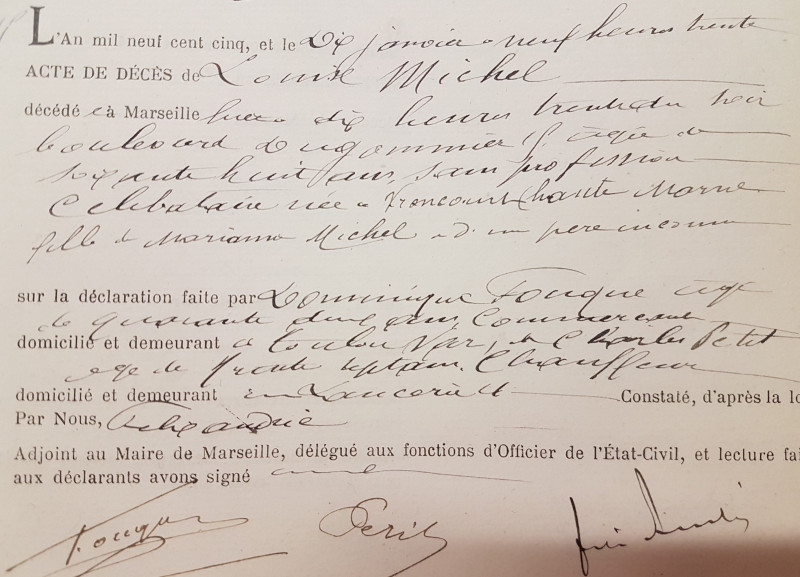 L'An mil neuf cent cinq, et le Dix janvier a neuf heures trente
ACTE DE DÉCÈS de Louise Michel
décédée à Marseille hier a dix heures trente du soir
boulevard Dugommier agée de
soixante huit ans, sans profession
Célibataire née a Vroncourt haute Marne
fille de Marianne Michel et d'un pere inconnu
sur la déclaration faite par Dominique Fouque agé
de quarante deux ans, Commercant
domicilié et demeurant a Toulon Var, de Charles Petit
age de trente sept ans, Chauffeur
domicilié et demeurant Constaté, d'après la lo
Par Nous,
Adjoint au Maire de Marseille, délégué aux fonctions d'Officier de l'État-Civil, et lecture fai
aux déclarants avons signé
Fouque Petit